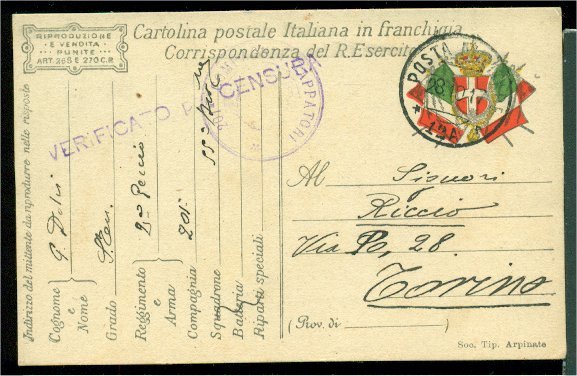 RIPRODUZIONE
E VENDITA
PUNITE
ART. 268 E 270 C.P.
Cartolina postale Italiana in franchigia
Corrispondenza del R. Esercito
POSTA
28
12A
VERIFICATO PER CENSURA
ZAPPATORI
Indirizzo del mittente da riprodurre nelle risposte
Cognome
e
Nome
Grado
Reggimento
e
Arma
Compagnia 201
Squadrone
Batteria
Riparti speciali
Al Signori
Riccio
Via Po, 28.
Torino
(Prov. di )
Soc. Tip. Arpinate